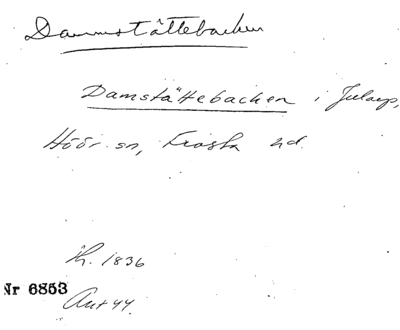 Dammstättebacken
Damstättebacken i Jularp,
Höör sn, Frosta hd.
h. 1836
Nr 6853
Ant 44.